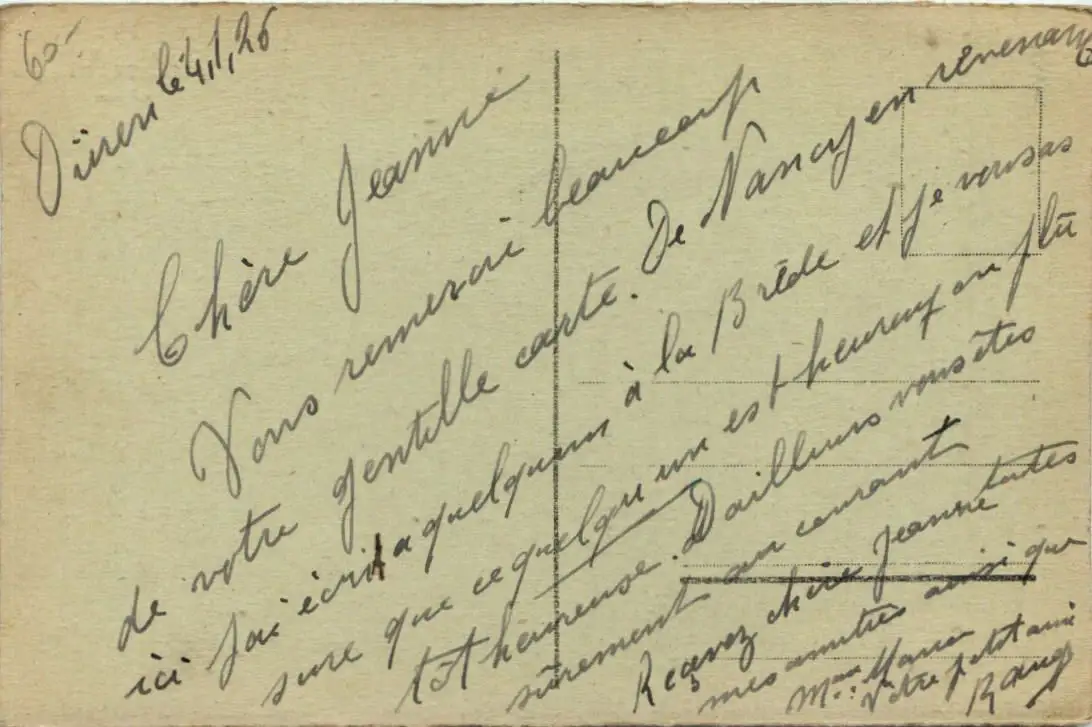 60-
Düren le 4,1,26
Chère Jeanne
Vous remerci beaucoup
de votre gentille carte. De Nancy en revenant
ici j'ai écrit a quelquun à la Brède et je vous as
sure que ce quelqu'un est heureux ou plû
tôt heureuse. Dailleurs vous êtes
sûrement au courant
Reçevez chère Jeanne toutes
mes amitiés ainsi que
Votre petit ami